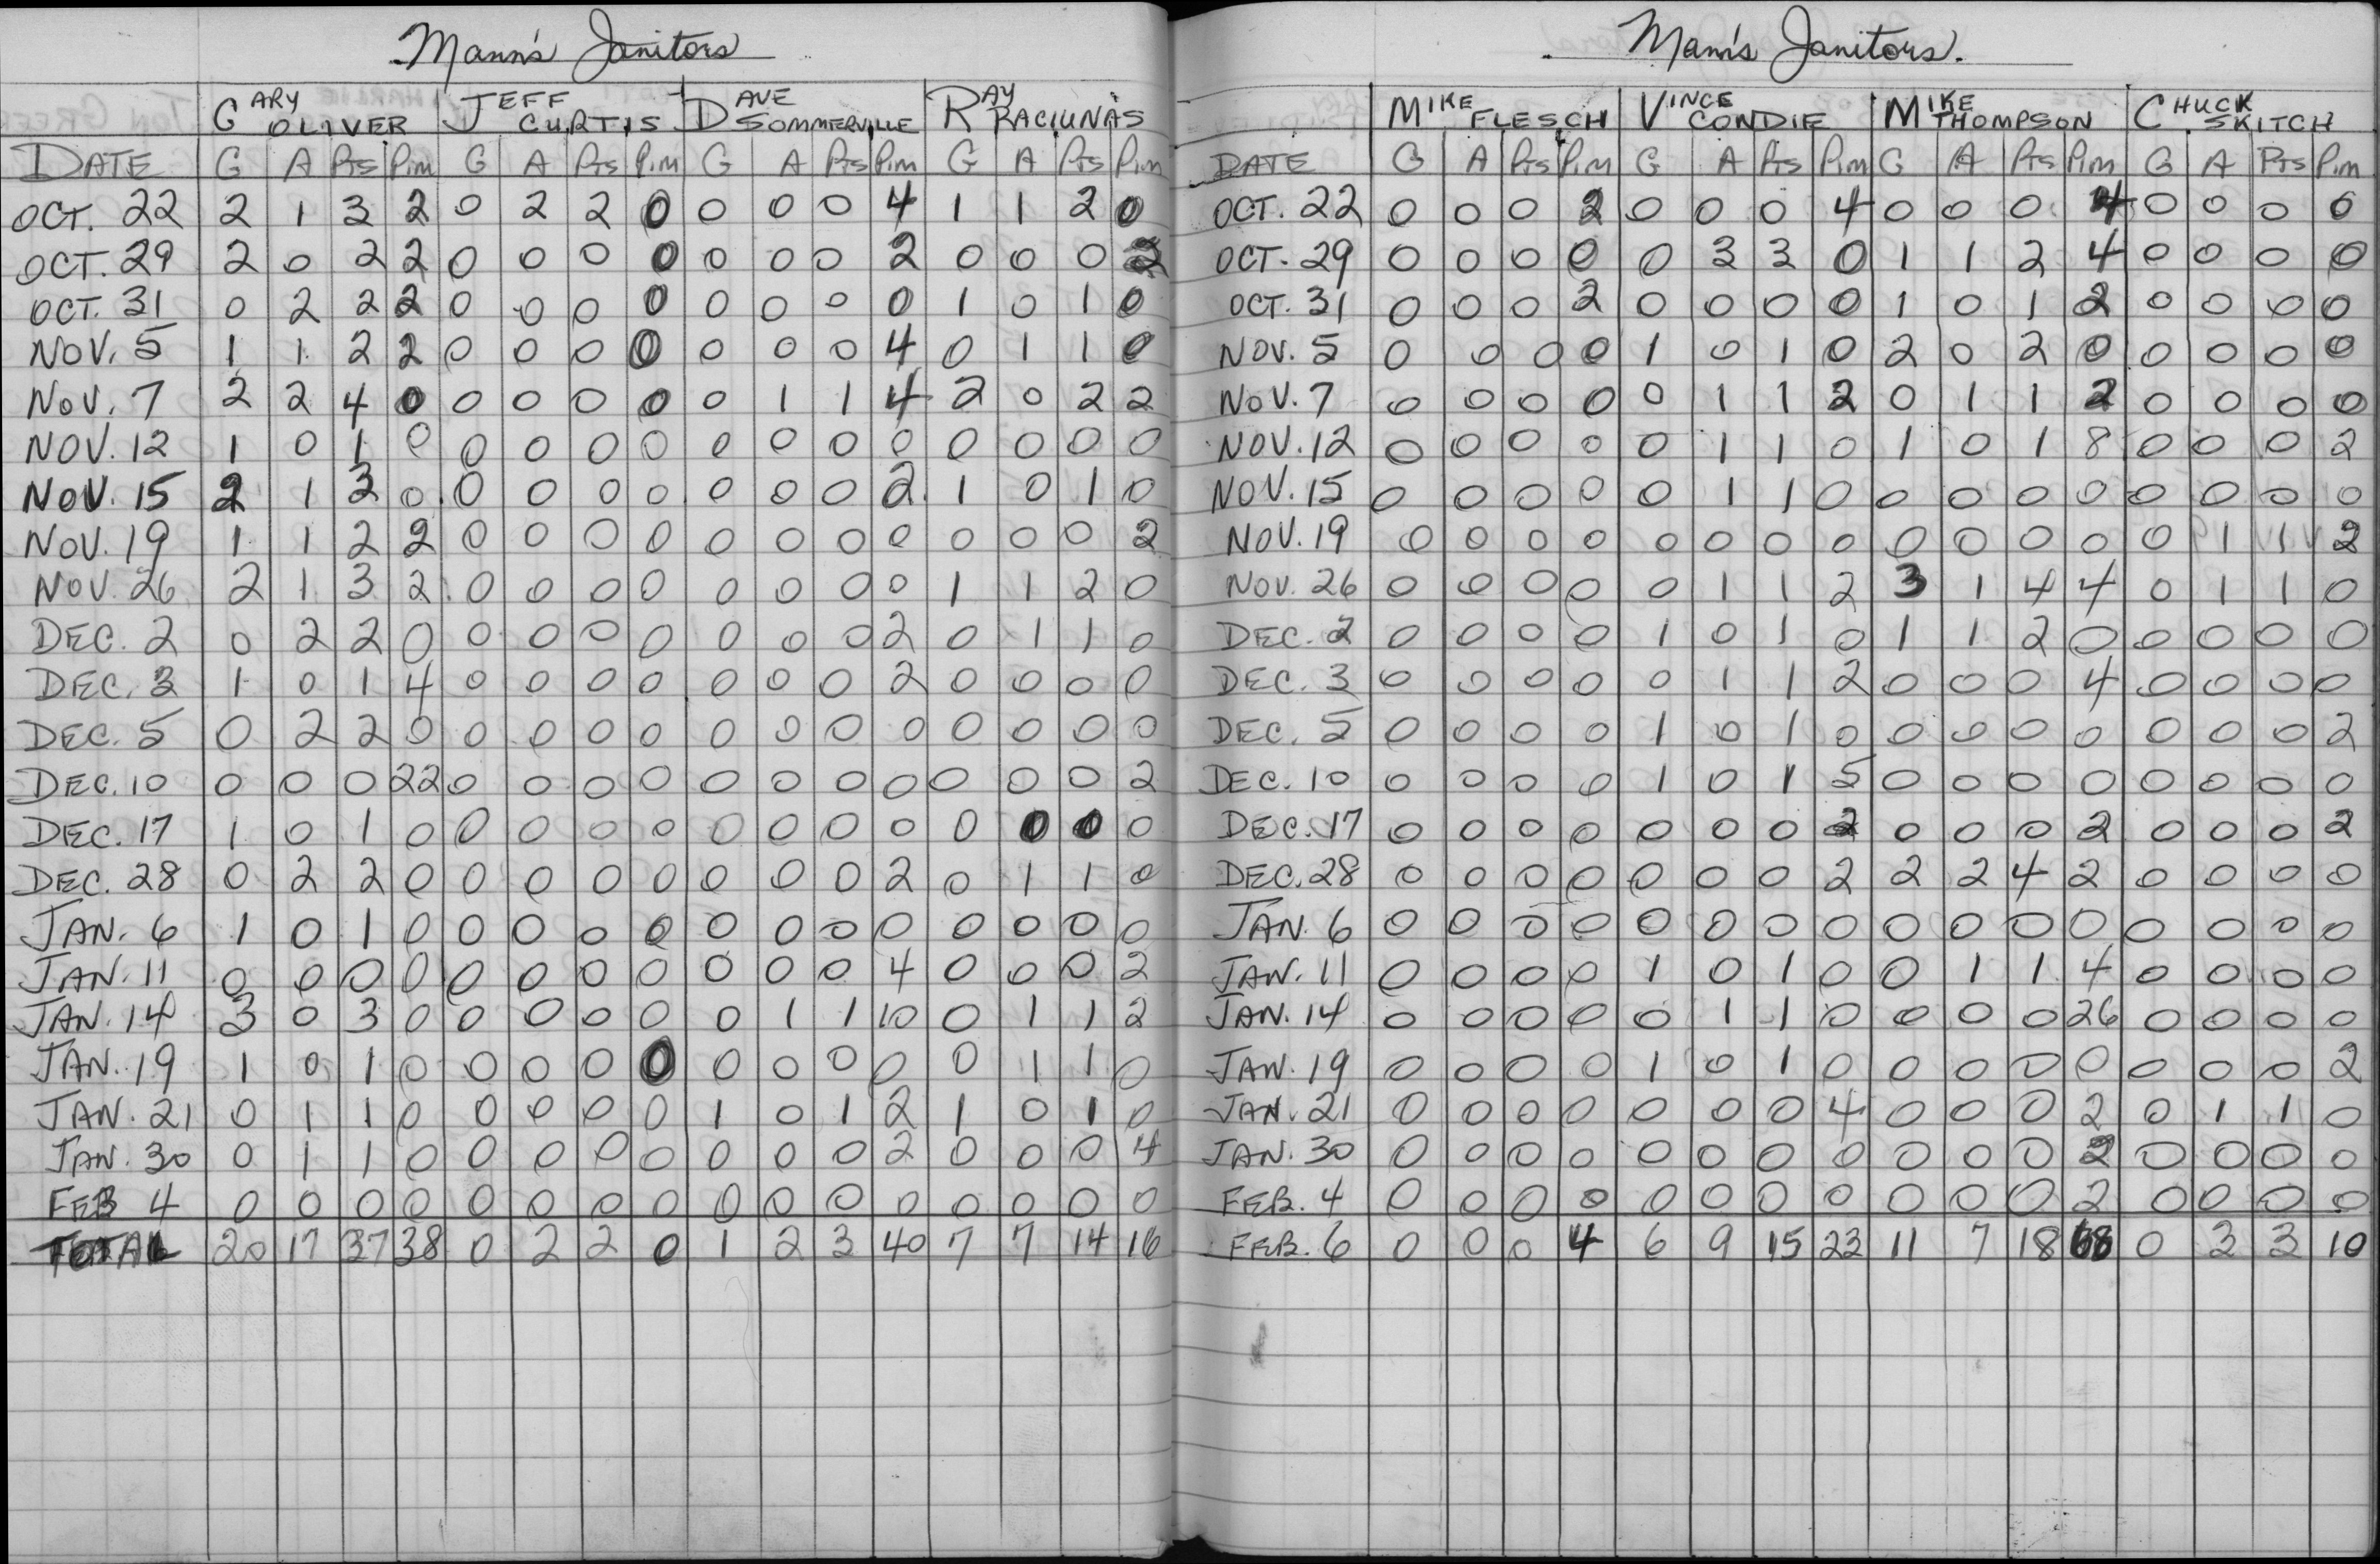 Mann's Janitors
GARY OLIVER JEFF CURTIS DAVE SOMMERVILLE RAY RACIUNAS
DATE G A Pts Pim G A Pts Pim G A Pts Pim G A Pts Pim
OCT. 22 2 1 3 2 0 2 2 0 0 0 0 4 1 1 2 0
OCT. 29 2 0 2 2 0 0 0 0 0 0 0 2 0 0 0 2
OCT. 31 0 2 2 2 0 0 0 0 0 0 0 0 1 0 1 0
NOV. 5 1 1 2 2 0 0 0 0 0 0 0 4 0 1 1 0
NOV. 7 2 2 4 0 0 0 0 0 0 1 1 4 2 0 2 2
NOV. 12 1 0 1 0 0 0 0 0 0 0 0 0 0 0 0 0
NOV. 15 2 1 3 0 0 0 0 0 0 0 0 2 1 0 1 0
NOV. 19 1 1 2 2 0 0 0 0 0 0 0 0 0 0 0 2
NOV. 26 2 1 3 2 0 0 0 0 0 0 0 0 1 1 2 0
DEC. 2 0 2 2 0 0 0 0 0 0 0 0 2 0 1 1 0
DEC. 3 1 0 1 4 0 0 0 0 0 0 0 2 0 0 0 0
DEC. 5 0 2 2 0 0 0 0 0 0 0 0 0 0 0 0 0
DEC. 10 0 0 0 22 0 0 0 0 0 0 0 0 0 0 0 2
DEC. 17 1 0 1 0 0 0 0 0 0 0 0 0 0 0 0 0
DEC. 28 0 2 2 0 0 0 0 0 0 0 0 2 0 1 1 0
JAN. 6 1 0 1 0 0 0 0 0 0 0 0 0 0 0 0 0
JAN. 11 0 0 0 0 0 0 0 0 0 0 0 4 0 0 0 2
JAN. 14 3 0 3 0 0 0 0 0 0 1 1 10 0 1 1 2
JAN. 19 1 0 1 0 0 0 0 0 0 0 0 0 0 1 1 0
JAN. 21 0 1 1 0 0 0 0 0 1 0 1 2 1 0 1 0
JAN. 30 0 1 1 0 0 0 0 0 0 0 0 2 0 0 0 4
FEB 4 0 0 0 0 0 0 0 0 0 0 0 0 0 0 0 0
TOTAL 20 17 37 38 0 2 2 0 1 2 3 40 7 7 14 16
Mann's Janitors.
MIKE FLESCH VINCE CONDIE MIKE THOMPSON CHUCK SKITCH
DATE G A Pts Pim G A Pts Pim G A Pts Pim G A Pts Pim
OCT. 22 0 0 0 2 0 0 0 4 0 0 0 4 0 0 0 0
OCT. 29 0 0 0 0 0 3 3 0 1 1 2 4 0 0 0 0
OCT. 31 0 0 0 2 0 0 0 0 1 0 1 2 0 0 0 0
NOV. 5 0 0 0 0 1 0 1 0 2 0 2 0 0 0 0 0
NOV. 7 0 0 0 0 0 1 1 2 0 1 1 2 0 0 0 0
NOV. 12 0 0 0 0 0 1 1 0 1 0 1 8 0 0 0 2
NOV. 15 0 0 0 0 0 1 1 0 0 0 0 0 0 0 0 0
NOV. 19 0 0 0 0 0 0 0 0 0 0 0 0 0 1 1 2
NOV. 26 0 0 0 0 0 1 1 2 3 1 4 4 0 1 1 0
DEC. 2 0 0 0 0 1 0 1 0 1 1 2 0 0 0 0 0
DEC. 3 0 0 0 0 0 1 1 2 0 0 0 4 0 0 0 0
DEC. 5 0 0 0 0 1 0 1 0 0 0 0 0 0 0 0 2
DEC. 10 0 0 0 0 1 0 1 5 0 0 0 0 0 0 0 0
DEC. 17 0 0 0 0 0 0 0 2 0 0 0 2 0 0 0 2
DEC. 28 0 0 0 0 0 0 0 2 2 2 4 2 0 0 0 0
JAN. 6 0 0 0 0 0 0 0 0 0 0 0 0 0 0 0 0
JAN. 11 0 0 0 0 1 0 1 0 0 1 1 4 0 0 0 0
JAN. 14 0 0 0 0 0 1 1 0 0 0 0 26 0 0 0 0
JAN. 19 0 0 0 0 1 0 1 0 0 0 0 0 0 0 0 2
JAN. 21 0 0 0 0 0 0 0 4 0 0 0 2 0 1 1 0
JAN. 30 0 0 0 0 0 0 0 0 0 0 0 2 0 0 0 0
FEB. 4 0 0 0 0 0 0 0 0 0 0 0 2 0 0 0 0
FEB. 6 0 0 0 4 6 9 15 23 11 7 18 68 0 3 3 10